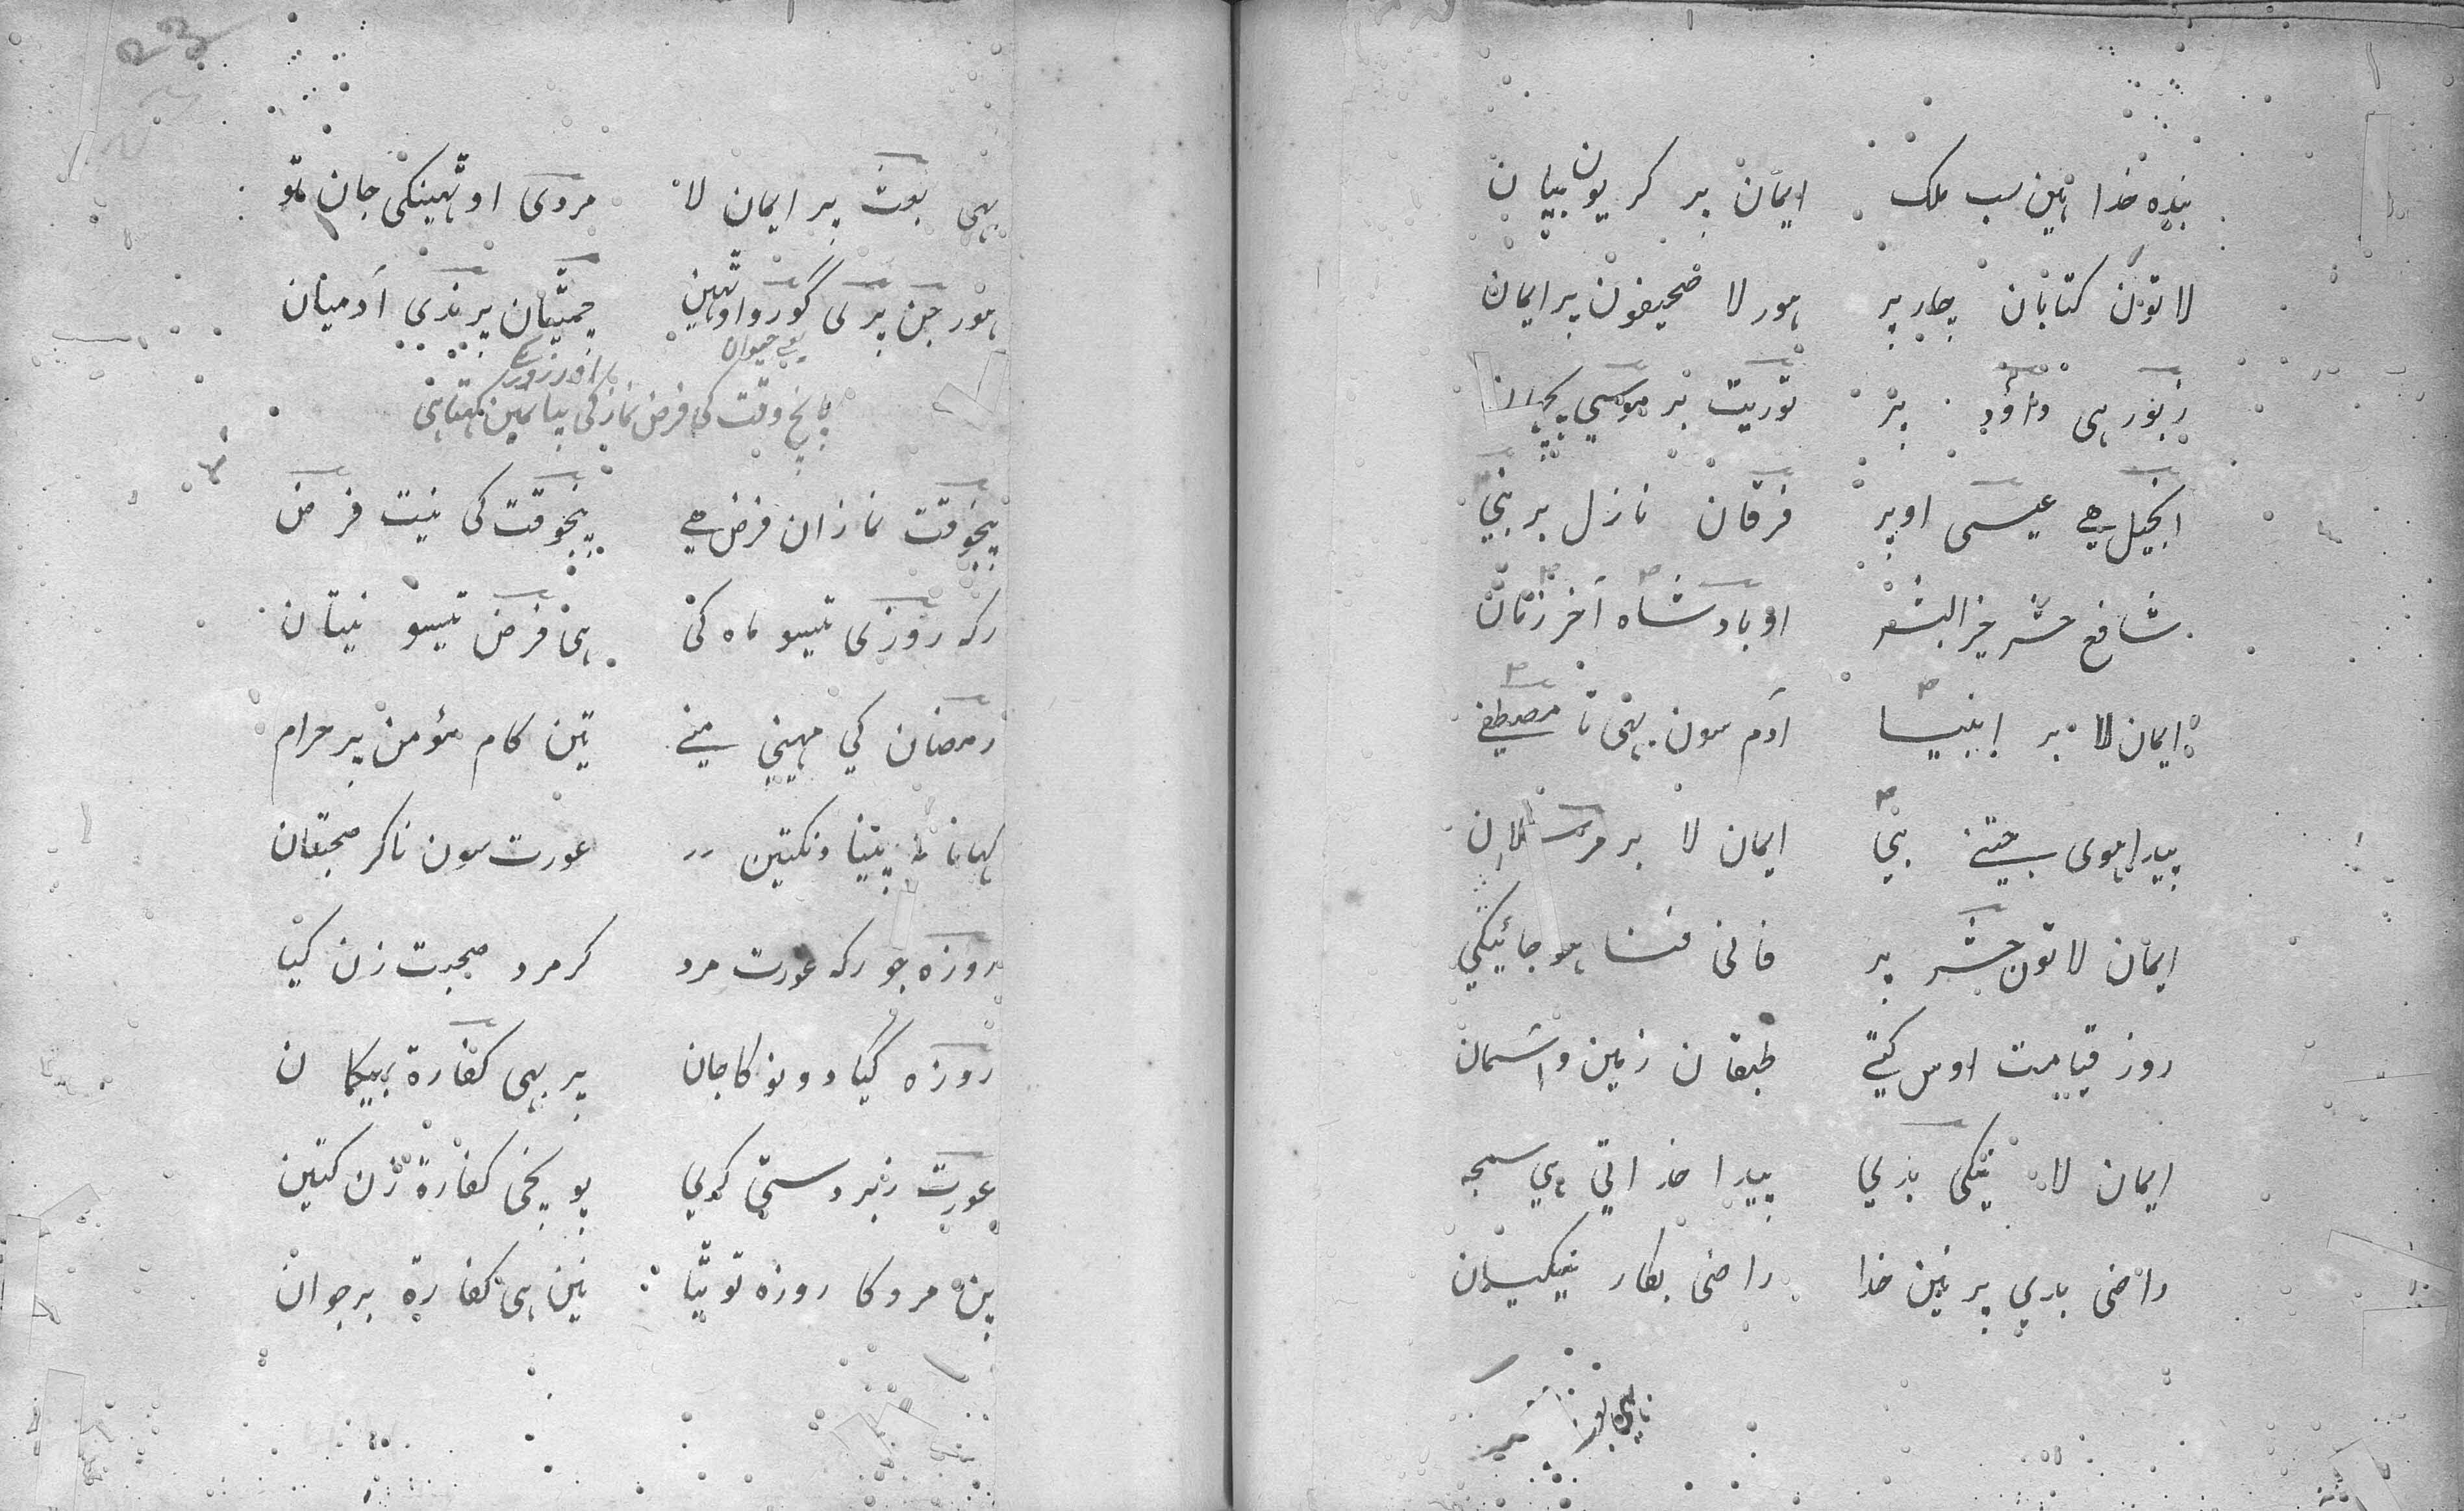 بنده خدا ہین سب ملک ایمان پر کر یون بیان
لا تون کتابان چار پر ہور لا صحیفون پر ایمان
زبور ہی داؤد پر توریت پر موسی
انجیل ہے عیسی اوپر فرقان نازل بر نبی
شافع حشر خیر البشر او بادشاہ آخر زمان
ایمان لا پر انبیا آدم سون بہی تا مصطفے
پیدا ہوی جتنے نبی ایمان لا بر
ایمان لا تون حشر پر فانی فنا ہو جائینگی
روز قیامت اوس کتے طبقان زمین و آسمان
ایمان لا نیکی بدی پیدا خدا تی ہی سمجہ
راضی بدی پر نین خدا راضی بکار نیکیان
بہی بعث پر ایمان لا مردی اوٹہینگی جان تو
ہور جن پری گور و اوٹہین چمٹیان پرندی آدمیان
یعنے حیوان
اور روزے
پانچ وقت کی فرض نماز کی بیا نمین کہتا ہی
پنجوقت نمازان فرض ہے پنجوقت کی نیت فرض
رکہ روزی تیسو ماہ کی ہی فرض تیسو نیتان
رمضان کی مہینی منے تین کام مؤمن پر حرام
کہانا نہ پینا دنکتین عورت سون ناکر صحبتان
روزہ جو رکہ عورت مرد کر مرد صحبت زن کیا
روزہ گیا دونو کا جان پر بہی کفارة بیکمان
عورت زبردستی کولی پونچی کفارة زن کتین
پن مرد کا روزہ توٹیا نین ہی کفارة بر جوان